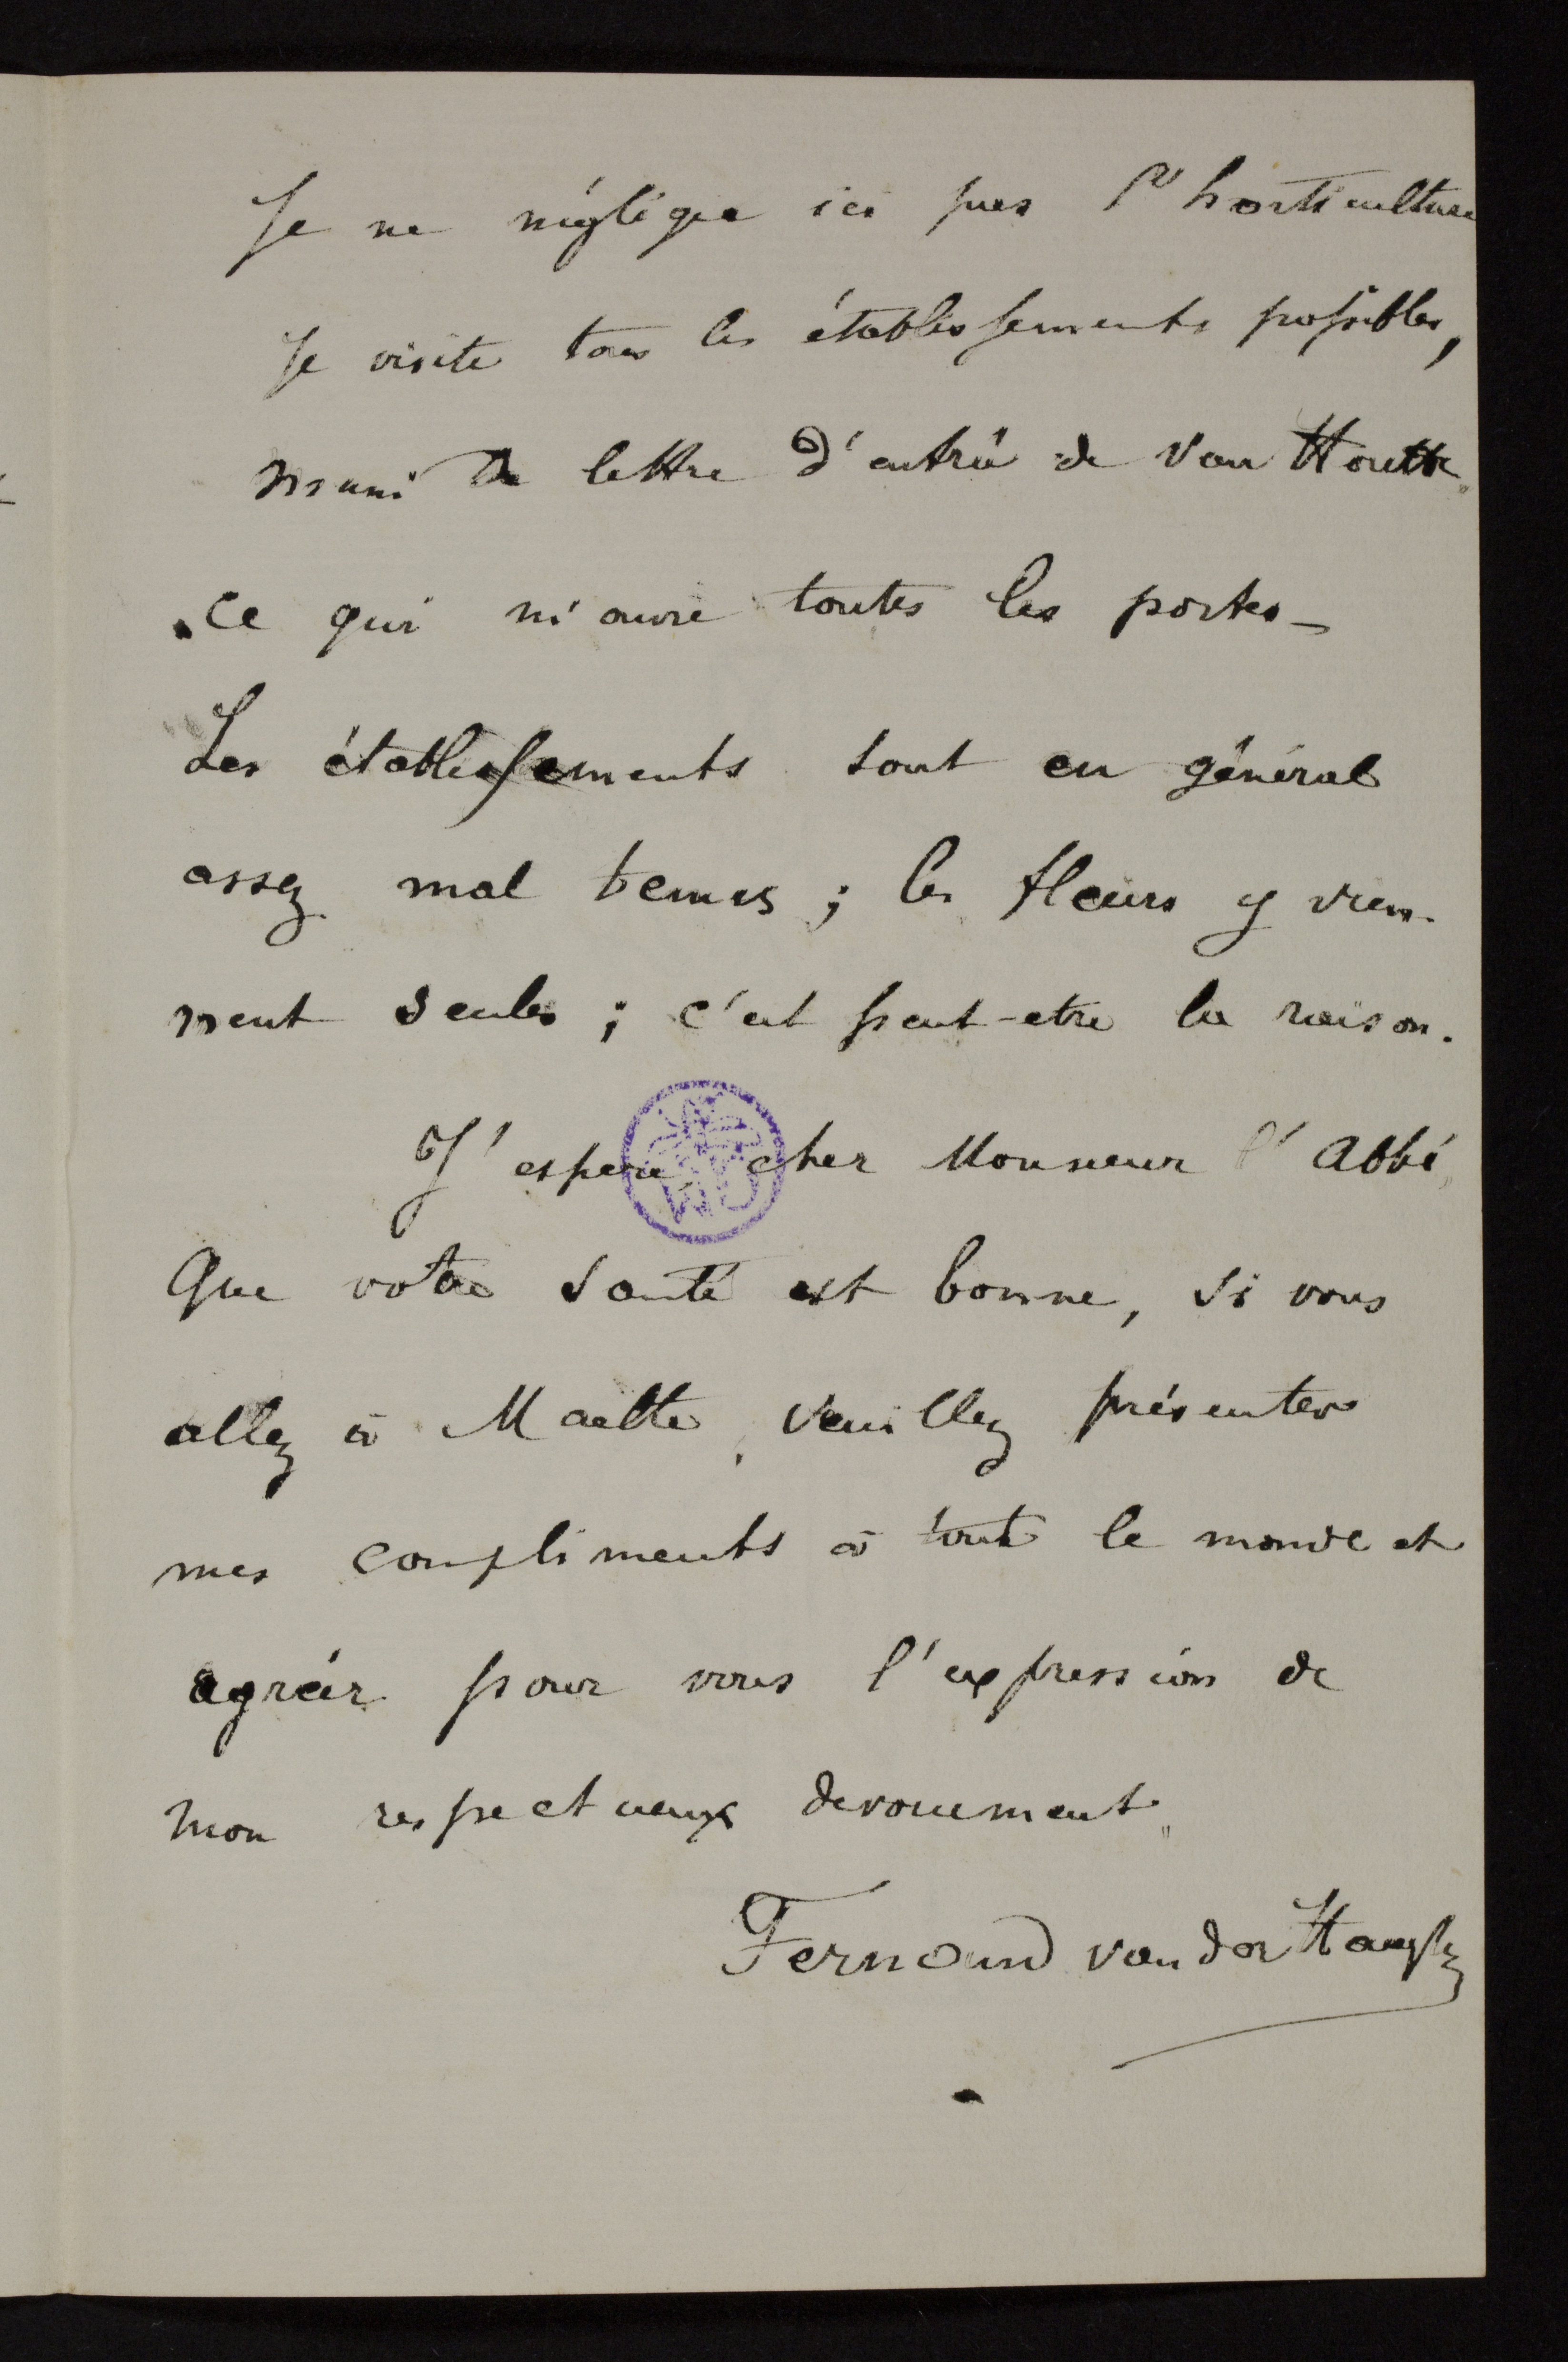 Je ne néglige ici pas l'horticulture
Je visite tous les établissements possibles,
muni de lettre d'entrée de Van Houtte.
ce qui m'ouvre toutes les portes_
Les établissements sont en général
assez mal tenus ; les fleurs y vien-
nent seules ; c'est peut-etre la raison.
J'espere, cher Monsieur l'Abbé,
Que votre santé est bonne, si vous
allez à Maelte, veuillez présenter
mes compliments à tout le monde et
agréer pour vous l'expression de
mon respectueux devouement
Fernand van der Haeghe